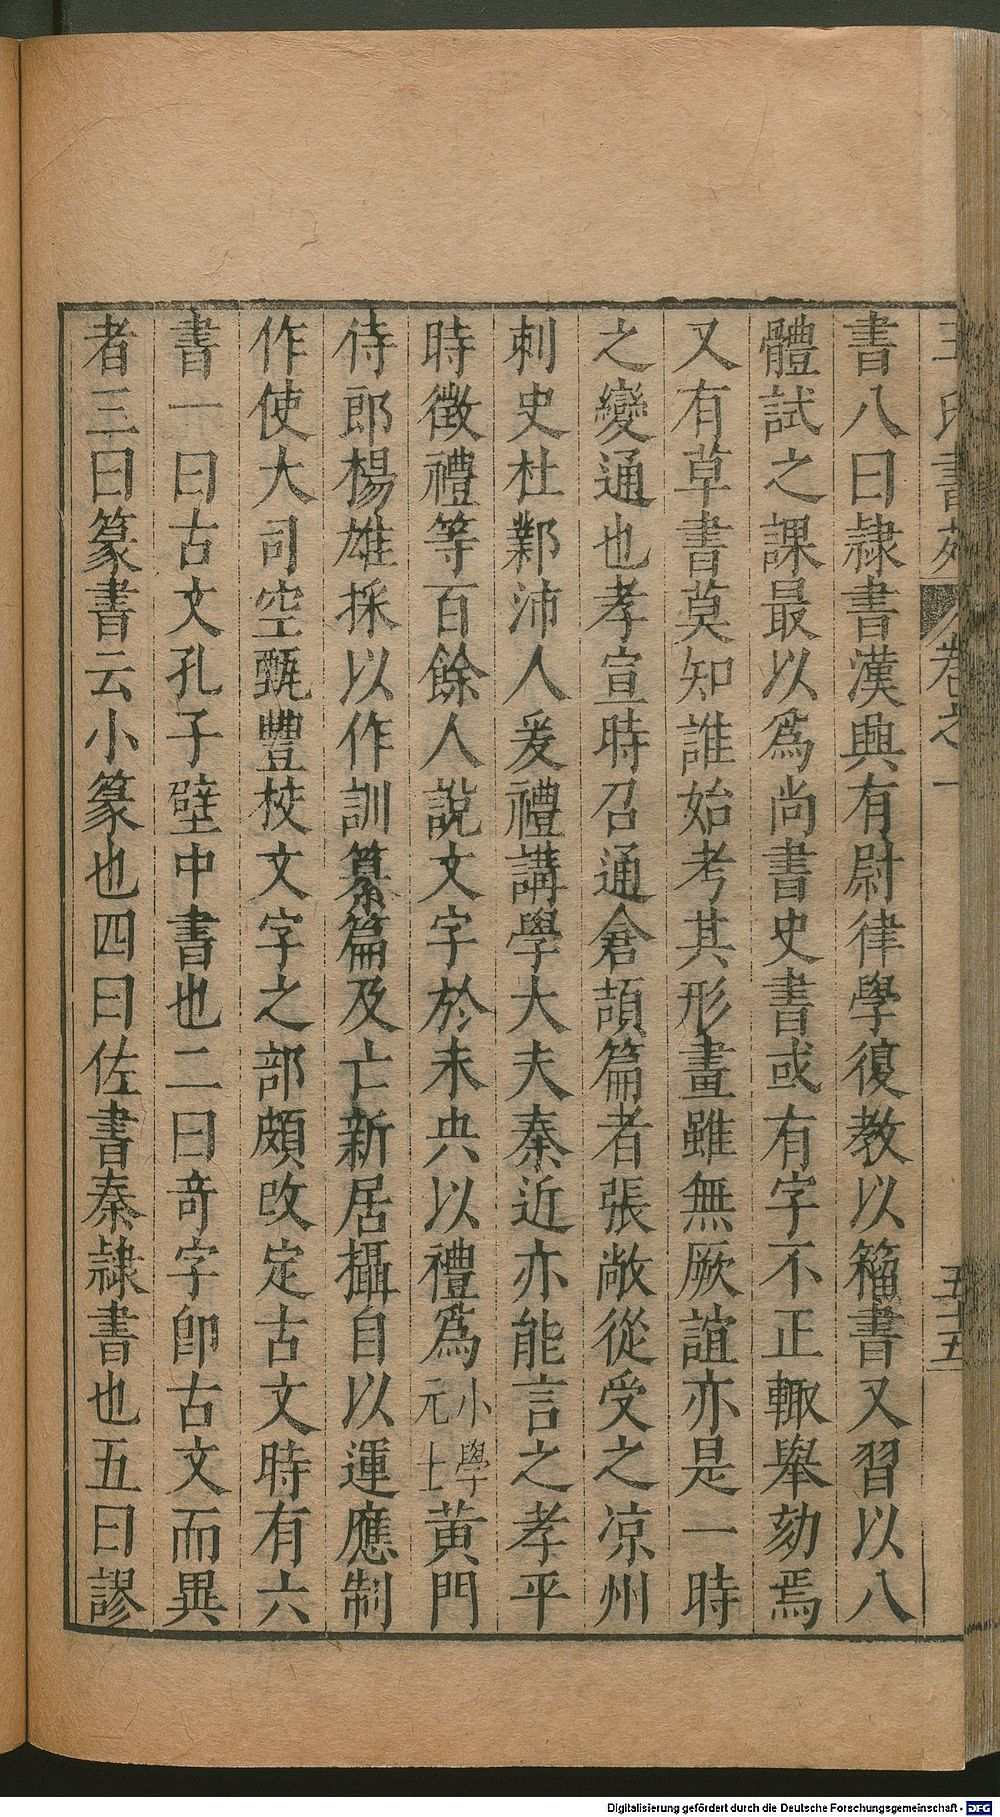 王氏書苑 卷之一 五十五
書八曰隷書漢興有尉律學復教以籀書又習以八
體試之課最以爲尚書史書或有字不正輙舉劾焉
又有草書莫知誰始考其形畫雖無厥誼亦是一時
之變通也孝宣時召通倉頡篇者張敞從受之凉州
刺史杜鄴沛人爰禮講學大夫秦近亦能言之孝平
時徵禮等百餘人說文字於未央以禮爲小學元士黄門
侍郎楊雄採以作訓纂篇及亡新居攝自以運應制
作使大司空甄豐校文字之部頗改定古文時有六
書一曰古文孔子壁中書也二曰竒字卽古文而異
者三曰篆書云小篆也四曰佐書秦隷書也五曰謬
Digitalisierung gefördert durch die Deutsche Forschungsgemeinschaft - DFG